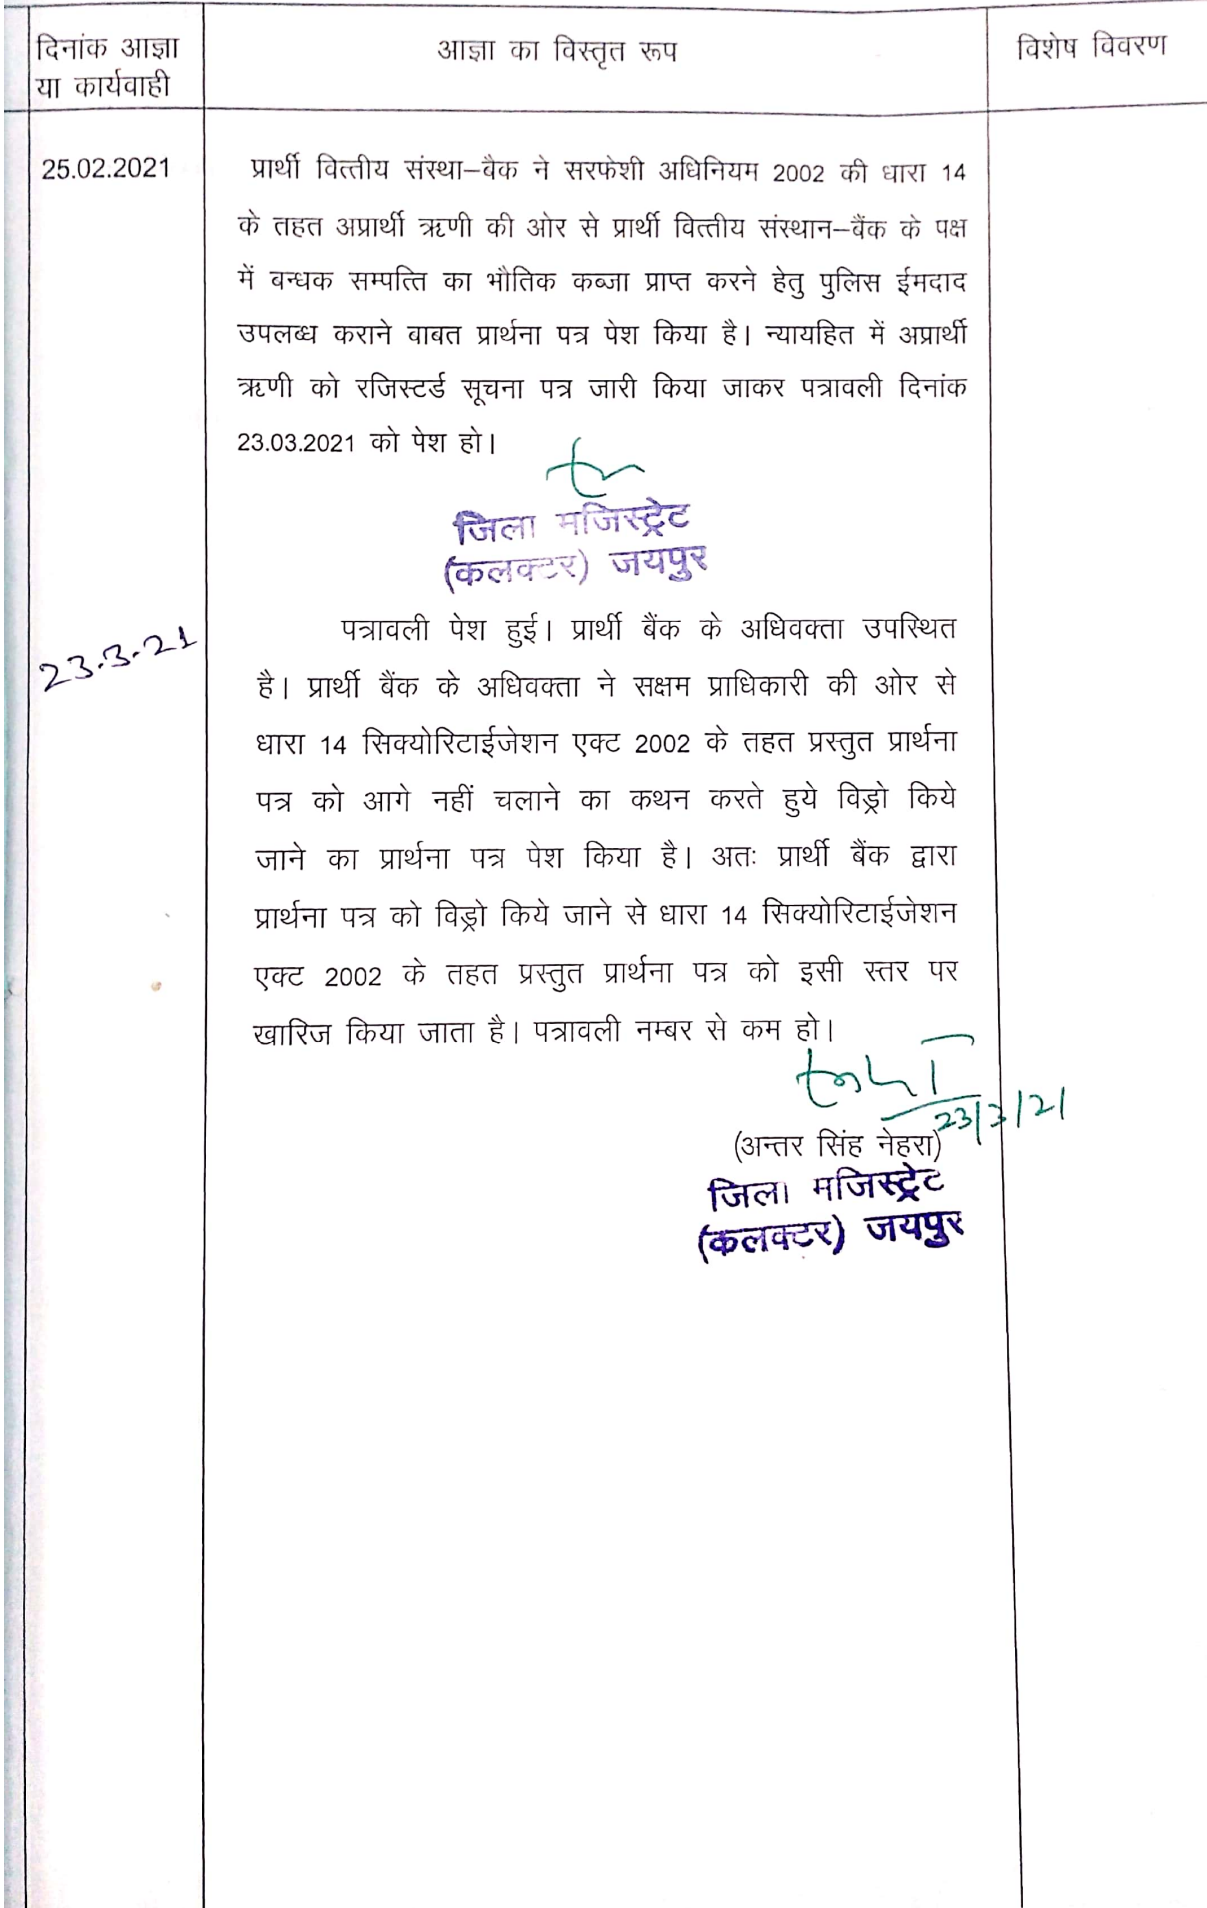 दिनांक आज्ञा
या कार्यवाही
आज्ञा का विस्तृत रूप
विशेष विवरण
25.02.2021
प्रार्थी वित्तीय संस्था–बैक ने सरफेशी अधिनियम 2002 की धारा 14
के तहत अप्रार्थी ऋणी की ओर से प्रार्थी वित्तीय संस्थान–बैंक के पक्ष
में बन्धक सम्पत्ति का भौतिक कब्जा प्राप्त करने हेतु पुलिस ईमदाद
उपलब्ध कराने बाबत प्रार्थना पत्र पेश किया है। न्यायहित में अप्रार्थी
ऋणी को रजिस्टर्ड सूचना पत्र जारी किया जाकर पत्रावली दिनांक
23.03.2021 को पेश हो।
जिला मजिस्ट्रेट
(कलक्टर) जयपुर
23.3.21
पत्रावली पेश हुई। प्रार्थी बैंक के अधिवक्ता उपस्थित
है। प्रार्थी बैंक के अधिवक्ता ने सक्षम प्राधिकारी की ओर से
धारा 14 सिक्योरिटाईजेशन एक्ट 2002 के तहत प्रस्तुत प्रार्थना
पत्र को आगे नहीं चलाने का कथन करते हुये विड्रो किये
जाने का प्रार्थना पत्र पेश किया है। अतः प्रार्थी बैंक द्वारा
प्रार्थना पत्र को विड्रो किये जाने से धारा 14 सिक्योरिटाईजेशन
एक्ट 2002 के तहत प्रस्तुत प्रार्थना पत्र को इसी स्तर पर
खारिज किया जाता है। पत्रावली नम्बर से कम हो।
23/3/21
(अन्तर सिंह नेहरा)
जिला मजिस्ट्रेट
(कलक्टर) जयपुर